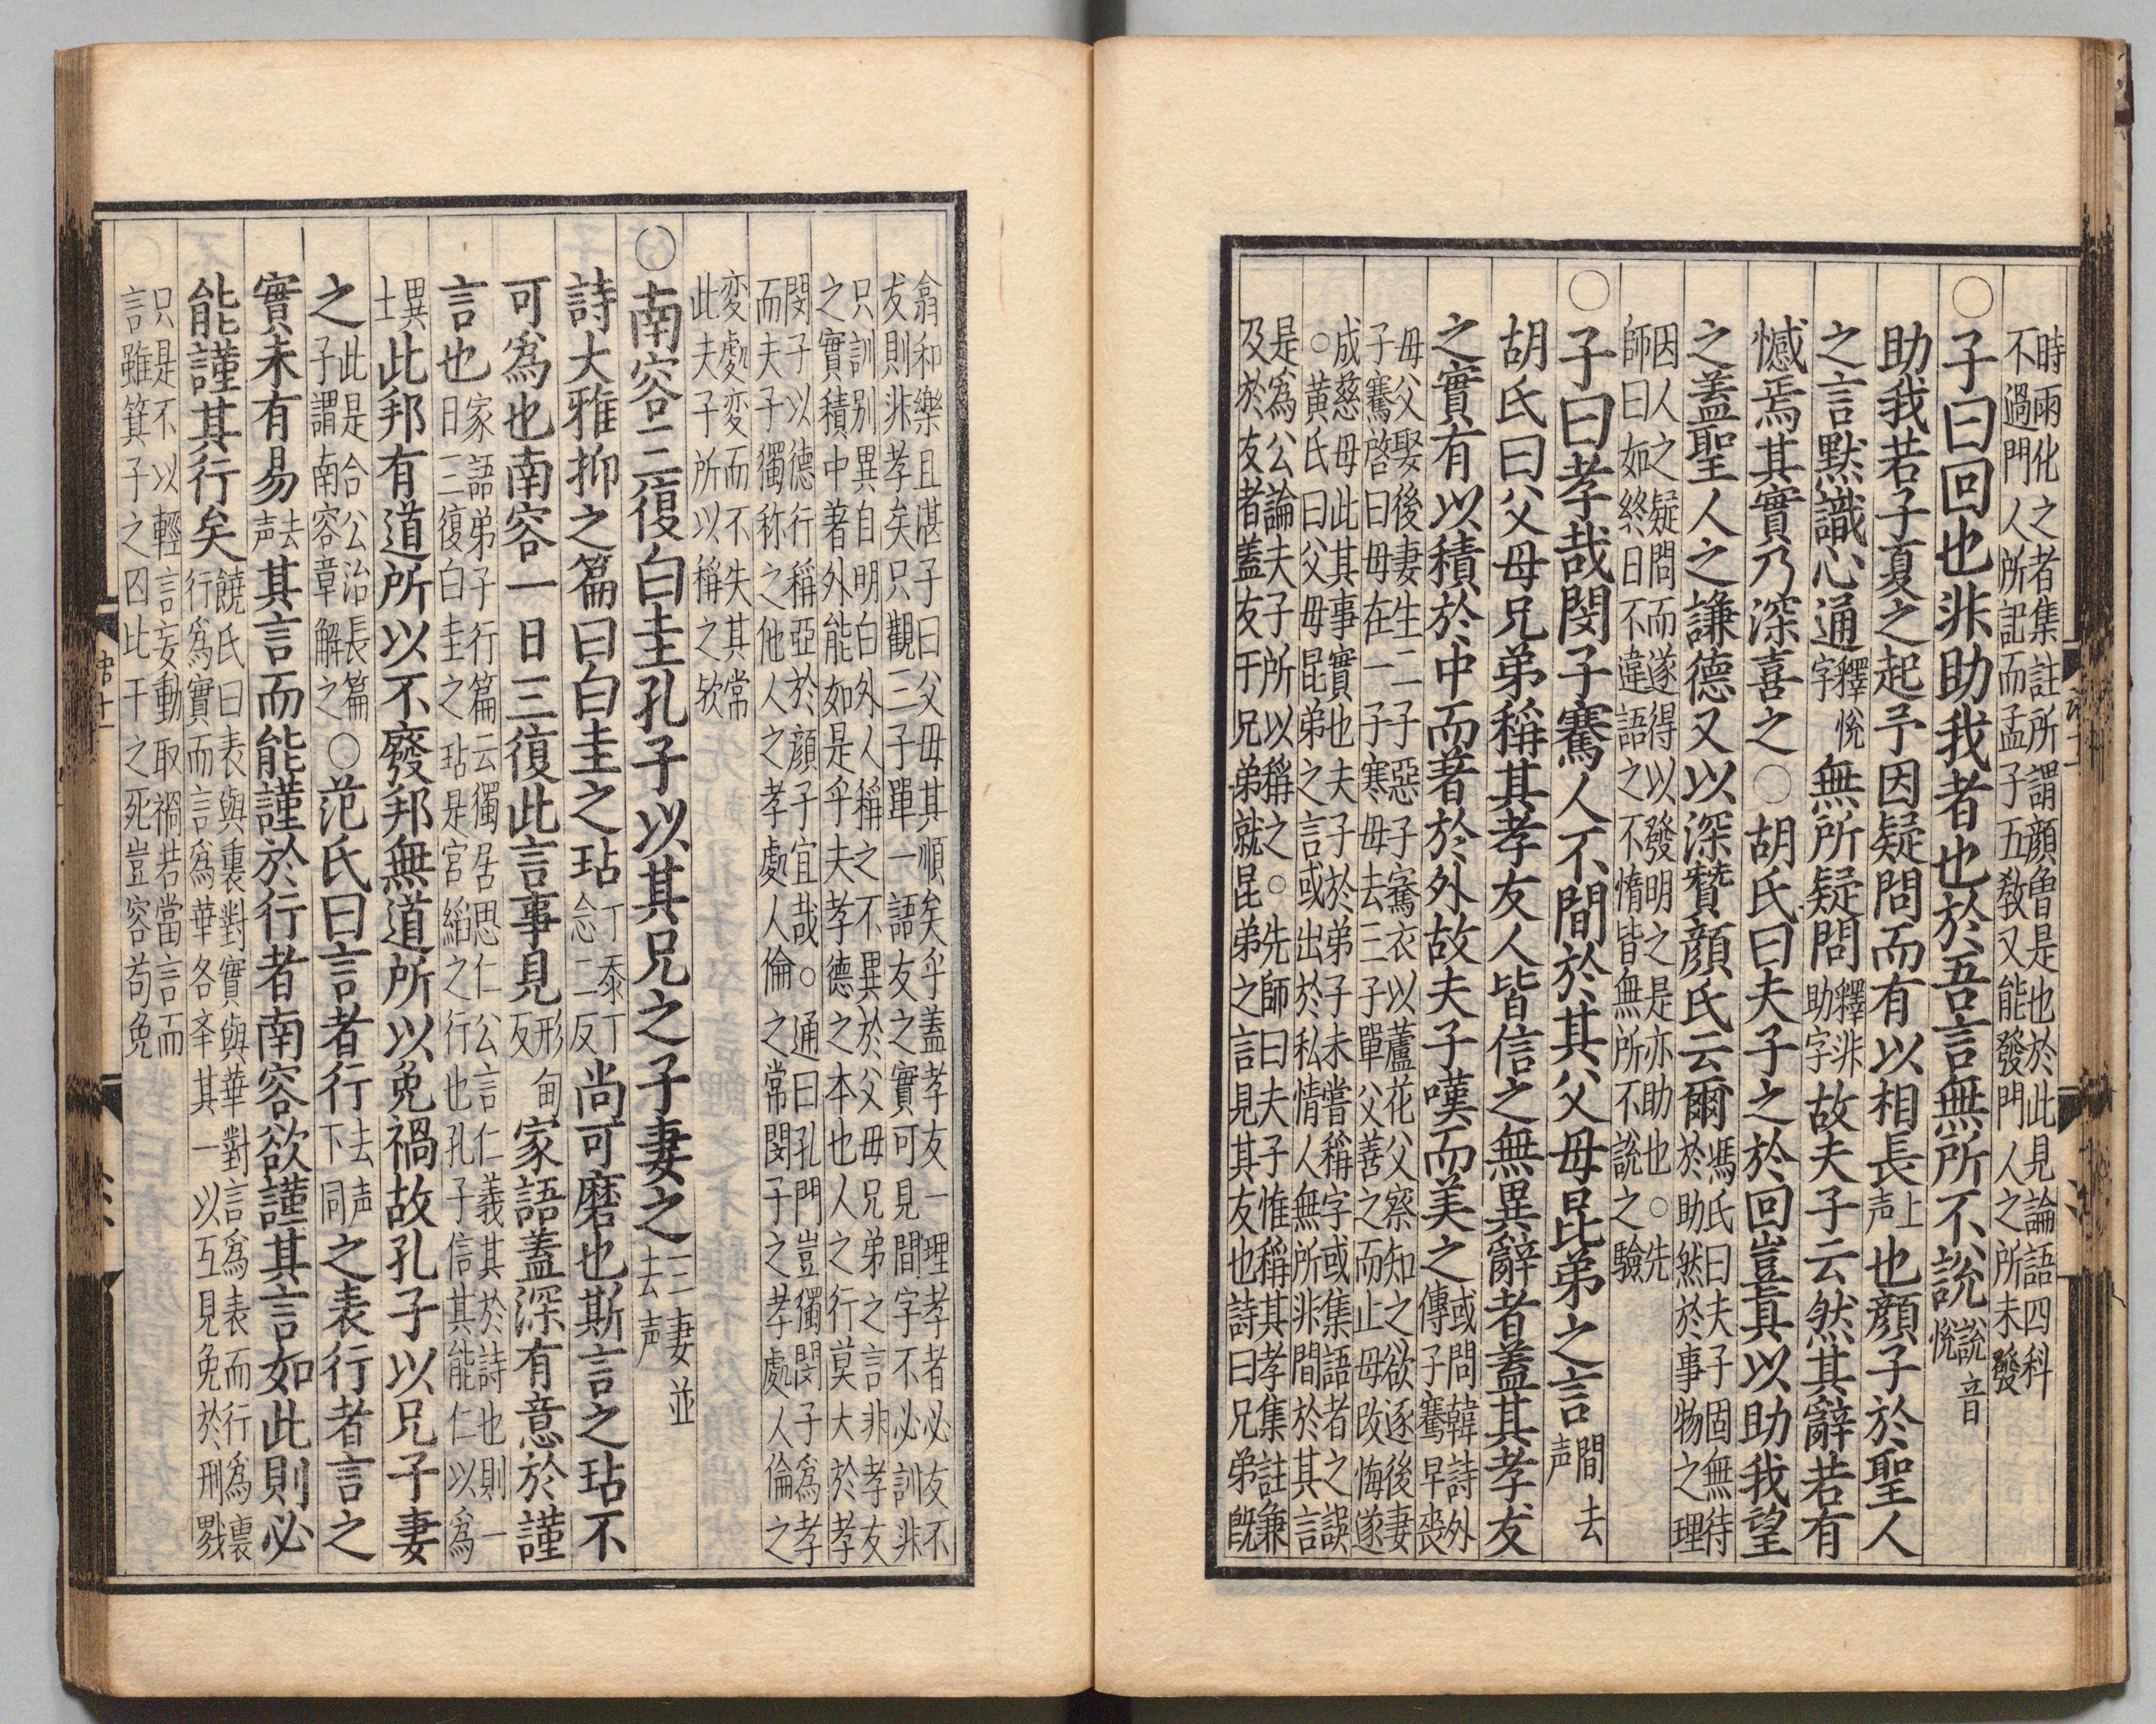 時雨化之者集註所謂顔魯是也於此見論語四科
不過門人所記而孟子五教又能發門人之所未發
○子曰回也非助我者也於吾言無所不說說音悅
助我若子夏之起予因疑問而有以相長上声也顔子於聖人
之言默識心通釋悅字無所疑問釋非助字故夫子云然其辭若有
憾焉其實乃深喜之○胡氏曰夫子之於回豈真以助我望
之蓋聖人之謙德又以深贊顔氏云爾馮氏曰夫子固無待於助然於事物之理
因人之疑問而遂得以發明之是亦助也○先
師曰如終日不違語之不惰皆無所不說之驗
○子曰孝哉閔子騫人不間於其父母昆弟之言間去声
胡氏曰父母兄弟稱其孝友人皆信之無異辭者蓋其孝友
之實有以積於中而著於外故夫子嘆而美之或問韓詩外傳子騫早喪
母父娶後妻生二子惡子騫衣以蘆花父察知之欲逐後妻
子騫啓曰母在一子寒母去三子單父善之而止母改悔遂
成慈母此其事實也夫子於弟子未嘗稱字或集語者之誤
○黃氏曰父母昆弟之言或出於私情人無所非間於其言
是爲公論夫子所以稱之○先師曰夫子惟稱其孝集註兼
及於友者蓋友于兄弟就昆弟之言見其友也詩曰兄弟旣
翕和樂且湛子曰父母其順矣乎蓋孝友一理孝者必友不
友則非孝矣只觀三子單一語友之實可見間字不必訓非
只訓别異自明白外人稱之不異於父母兄弟之言非孝友
之實積中著外能如是乎夫孝德之本也人之行莫大於孝
閔子以德行稱亞於顔子宜哉○通曰孔門豈獨閔子爲孝
而夫子獨称之他人之孝處人倫之常閔子之孝處人倫之
変處変而不失其常
此夫子所以稱之欤
○南容三復白圭孔子以其兄之子妻之三妻並去声
詩大雅抑之篇曰白圭之玷丁忝丁念二反尚可磨也斯言之玷不
可爲也南容一日三復此言事見形甸反家語蓋深有意於謹
言也家語弟子行篇云獨居思仁公言仁義其於詩也則一日三復白圭之玷是宮縚之行也孔子信其能仁以爲
異士此邦有道所以不廢邦無道所以免禍故孔子以兄子妻
之此是合公治長篇子謂南容章解之○范氏曰言者行去声下同之表行者言之
實未有易去声其言而能謹於行者南容欲謹其言如此則必
能謹其行矣饒氏曰表與裏對實與華對言爲表而行爲裏行爲實而言爲華各㪯其一以互見免於刑戮
只是不以輕言妄動取禍若當言而
言雖箕子之囚比干之死豈容苟免